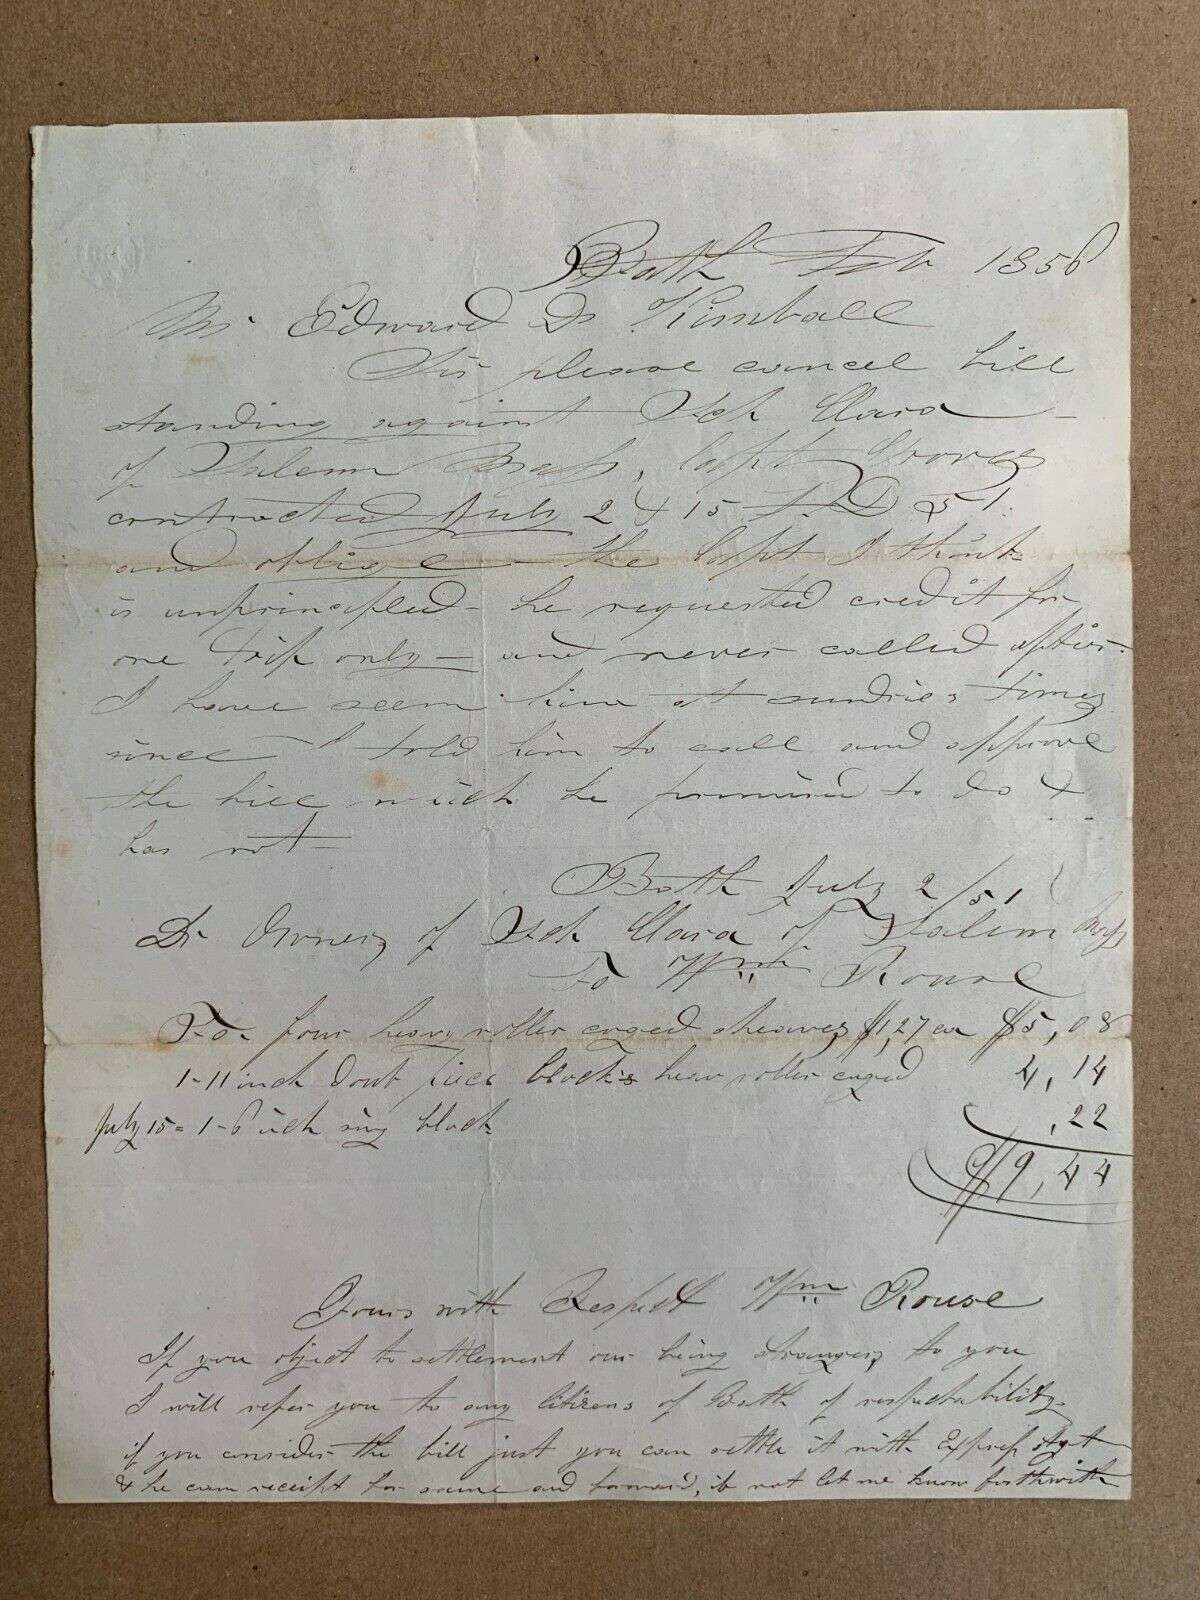 Bath Feb 1856
Mr Edward D Kimball
Sir please cancel bill
standing against Sch Clara
of Salem Mass, Capt Groves
contracted July 2 & 15 A.D 51.
and oblige - the Capt I think
is unprincipled - he requested credit for
one trip only - and never called after.
I have seen him at sundries times
since I told him to call and approve
the bill which he promised to do &
has not -
Bath July 2/51
Dr Owners of Sch Clara of Salem Mass
To Wm Rouse
To four heavy roller caged sheaves $1,27 ea $5,08
1-11 inch Doub blocks heav roller caged 4,14
July 15 = 1-6 inch sing block ,22
$9,44
Yours with Respect Wm Rouse
If you object to settlement our being strangers to you
I will refer you to any Citizens of Bath of respectability
if you consider the bill just you can settle it with Express Agt
& he can receipt for same and forward, if not let me know forthwith